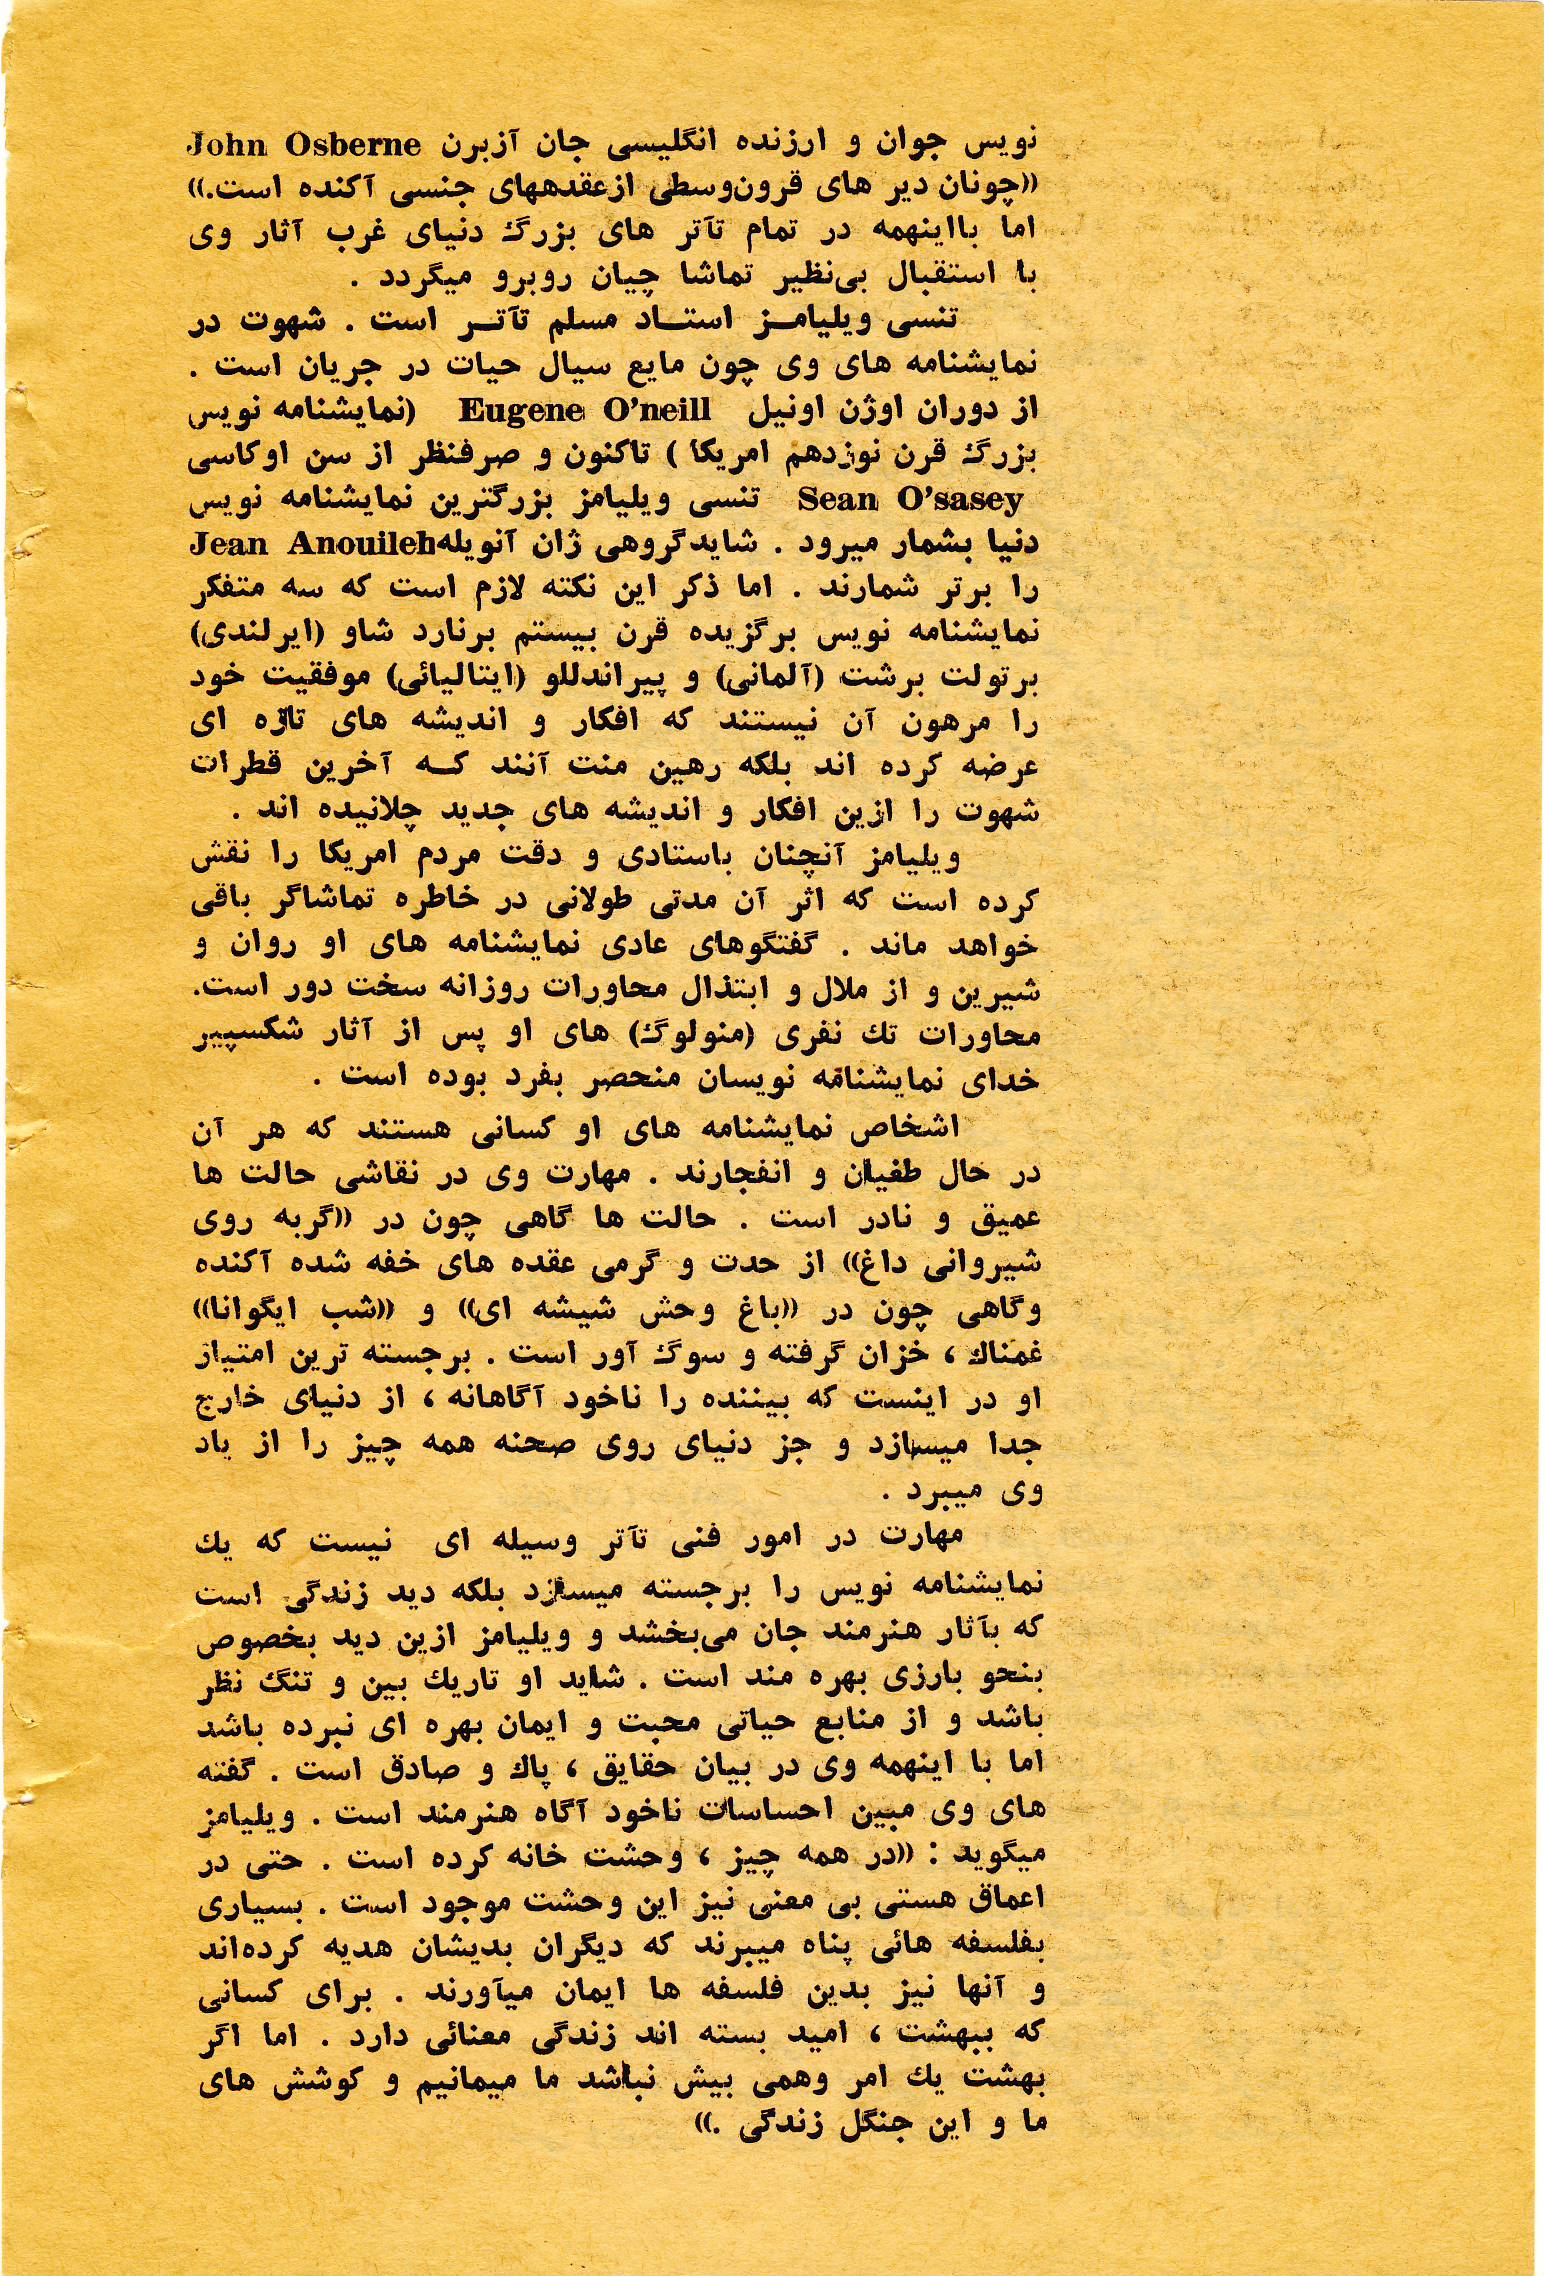 نویس جوان و ارزنده انگلیسی جان آزبرن John Osberne
((چونان دیر های قرون‌وسطی ازعقدههای جنسی آکنده است.))
اما بااینهمه در تمام تآتر های بزرگ دنیای غرب آثار وی
با استقبال بی‌نظیر تماشا چیان روبرو میگردد .
تنسی ویلیامز استاد مسلم تآتر است . شهوت در
نمایشنامه های وی چون مایع سیال حیات در جریان است .
از دوران اوژن اونیل Eugene O’neill (نمایشنامه نویس
بزرگ قرن نوزدهم امریکا ) تاکنون و صرفنظر از سن اوکاسی
Sean O’sasey تنسی ویلیامز بزرگترین نمایشنامه نویس
دنیا بشمار میرود . شاید گروهی ژان آنویله Jean Anouileh
را برتر شمارند . اما ذکر این نکته لازم است که سه متفکر
نمایشنامه نویس برگزیده قرن بیستم برنارد شاو (ایرلندی)
برتولت برشت (آلمانی) و پیراندللو (ایتالیائی) موفقیت خود
را مرهون آن نیستند که افکار و اندیشه های تازه ای
عرضه کرده اند بلکه رهین منت آنند که آخرین قطرات
شهوت را ازین افکار و اندیشه های جدید چلانیده اند .
ویلیامز آنچنان باستادی و دقت مردم امریکا را نقش
کرده است که اثر آن مدتی طولانی در خاطره تماشاگر باقی
خواهد ماند . گفتگوهای عادی نمایشنامه های او روان و
شیرین و از ملال و ابتذال محاورات روزانه سخت دور است.
محاورات تك نفری (منولوگ) های او پس از آثار شکسپیر
خدای نمایشنامه نویسان منحصر بفرد بوده است .
اشخاص نمایشنامه های او کسانی هستند که هر آن
در حال طغیان و انفجارند . مهارت وی در نقاشی حالت ها
عمیق و نادر است . حالت ها گاهی چون در ((گربه روی
شیروانی داغ)) از حدت و گرمی عقده های خفه شده آکنده
وگاهی چون در ((باغ وحش شیشه ای)) و ((شب ایگوانا))
غمناك ، خزان گرفته و سوگ آور است . برجسته ترین امتیاز
او در اینست که بیننده را ناخود آگاهانه ، از دنیای خارج
جدا میسازد و جز دنیای روی صحنه همه چیز را از یاد
وی میبرد .
مهارت در امور فنی تآتر وسیله ای نیست که یك
نمایشنامه نویس را برجسته میسازد بلکه دید زندگی است
که بآثار هنرمند جان می‌بخشد و ویلیامز ازین دید بخصوص
بنحو بارزی بهره مند است . شاید او تاریك بین و تنگ نظر
باشد و از منابع حیاتی محبت و ایمان بهره ای نبرده باشد
اما با اینهمه وی در بیان حقایق ، پاك و صادق است . گفته
های وی مبین احساسات ناخود آگاه هنرمند است . ویلیامز
میگوید : ((در همه چیز ، وحشت خانه کرده است . حتی در
اعماق هستی بی معنی نیز این وحشت موجود است . بسیاری
بفلسفه هائی پناه میبرند که دیگران بدیشان هدیه کرده‌اند
و آنها نیز بدین فلسفه ها ایمان میآورند . برای کسانی
که ببهشت ، امید بسته اند زندگی معنائی دارد . اما اگر
بهشت یك امر وهمی بیش نباشد ما میمانیم و کوشش های
ما و این جنگل زندگی .))